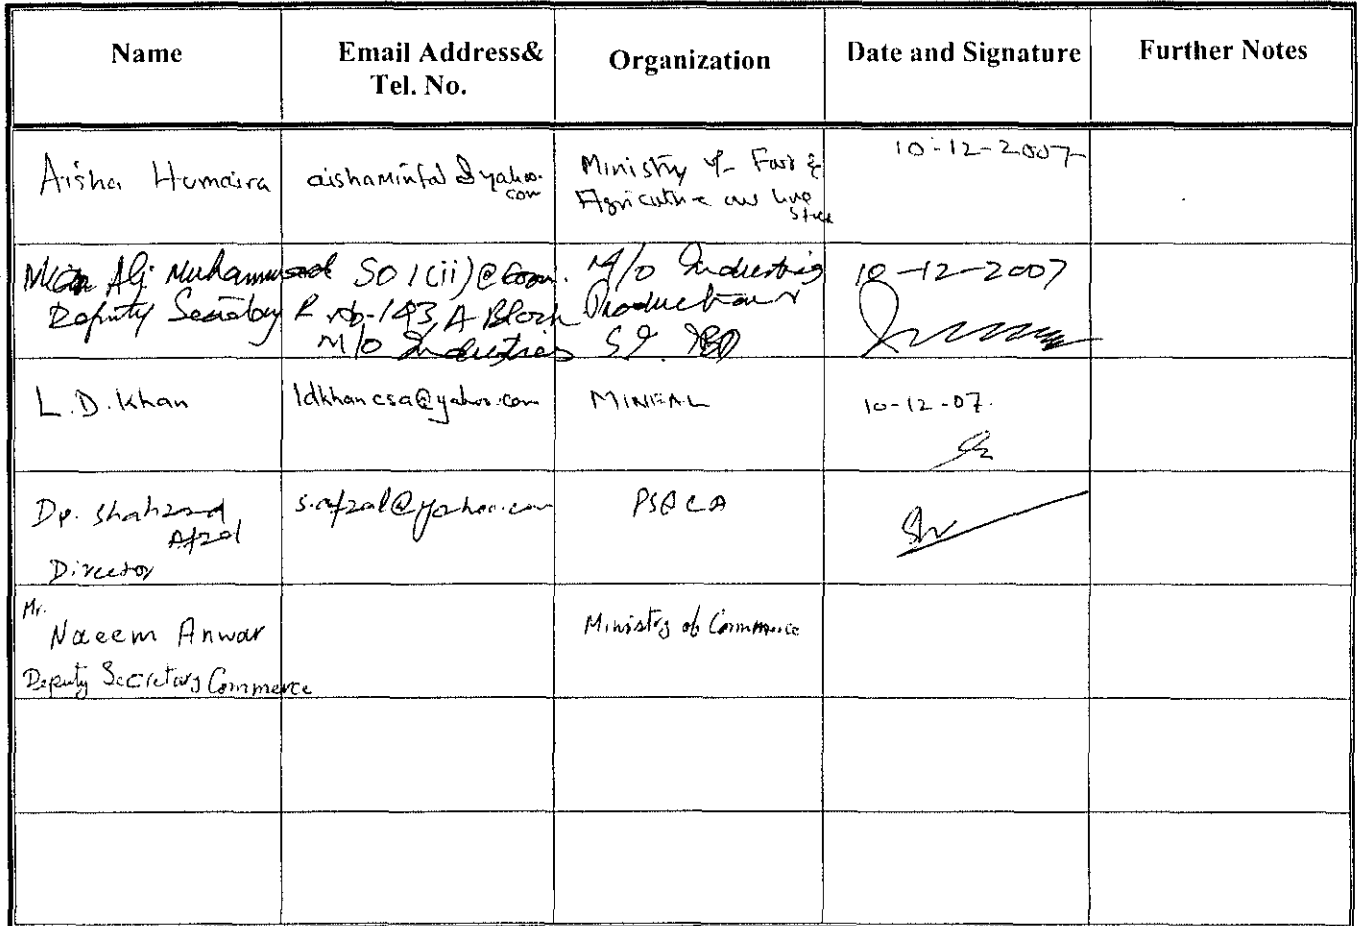 Name
Email Address&
Tel. No.
Organization
Date and Signature
Further Notes
Aisha Humaira
aishaminfal@yahoo.
com
Ministry of Food &
Agriculture and Live
Stock
10-12-2007
Mian Ali Muhammad
Deputy Secretary
SO 1(ii)@
R No-143, A Block
M/o Industries
M/o Industries
Production
10-12-2007
L.D. Khan
ldkhancsa@yahoo.com
MINFAL
10-12-07.
Dr. Shahzad
Afzal
Director
s.afzal@yahoo.com
PSQCA
Mr.
Naeem Anwar
Deputy Secretary Commerce
Ministry of Commerce